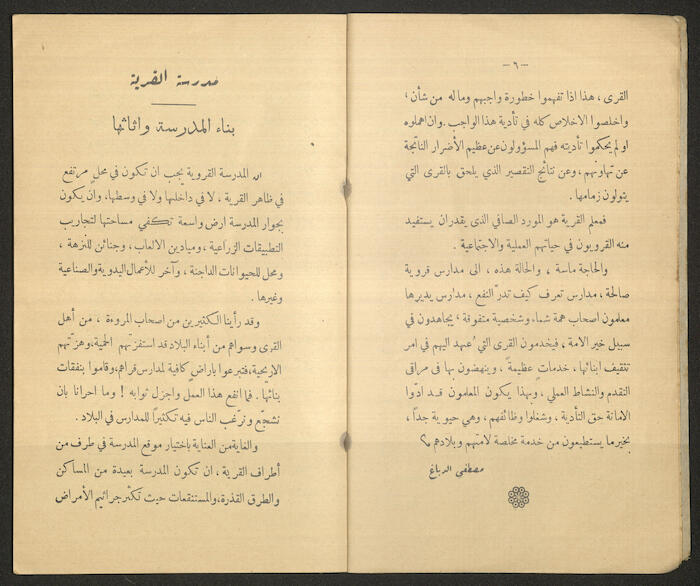 - ٦ -
القرى ، هذا اذا تفهموا خطورة واجبهم وما له من شأن ،
واخلصوا الاخلاص كله في تأدية هذا الواجب . وان اهملوه
او لم يحكموا تأديته فهم المسؤولون عن عظيم الأضرار الناتجة
عن تهاونهم ، وعن نتائج التقصير الذي يلحق بالقرى التي
يتولون زمامها .
فمعلم القرية هو المورد الصافي الذى يقدران يستفيد
منه القرويون في حياتهم العملية والاجتماعية .
والحاجة ماسة ، والحالة هذه ، الى مدارس قروية
صالحة ، مدارس تعرف كيف تدرّ النفع ، مدارس يديرها
معلمون اصحاب همة شماء وشخصية متفوقة ، يجاهدون في
سبيل خير الامة ، فيخدمون القرى التي عهد اليهم في امر
تثقيف ابنائها ، خدمات عظيمةً ، وينهضون بها في مراقى
التقدم والنشاط العملي ، وبهذا يكون المعلمون قد ادّوا
الامانة حق التأدية ، وشغلوا وظائفهم ، وهي حيوية جداً ،
بخير ما يستطيعون من خدمة مخلصة لامتهم وبلادهم
مصطفى الدباغ
مدرسة القرية
بناء المدرسة واثاثها
ان المدرسة القروية يجب ان تكون في محلٍ مرتفع
في ظاهر القرية ، لا في داخلها ولا في وسطها، وان يكون
بجوار المدرسة ارض واسعة تكفي مساحتها لتجاريب
التطبيقات الزراعية ، وميادين الالعاب ، وجنائن للنزهة ،
ومحل للحيوانات الداجنة ، وآخر للأعمال اليدوية والصناعية
وغيرها .
وقد رأينا الكثيرين من اصحاب المروءة ، من أهل
القرى وسواهم من أبناء البلاد قد استفزّتهم الحمية، وهزّتهم
الاريحية، فتبرعوا باراضٍ كافية لمدارس قراهم، وقاموا بنفقات
بنائها . فما انفع هذا العمل واجزل ثوابه ! وما احرانا بان
نشجّع ونرغّب الناس فيه تكثيراً للمدارس في البلاد .
والغاية من العناية باختيار موقع المدرسة في طرف من
أطراف القرية ، ان تكون المدرسة بعيدة من المساكن
والطرق القذرة، والمستنقعات حيث تكثر جراثيم الأمراض